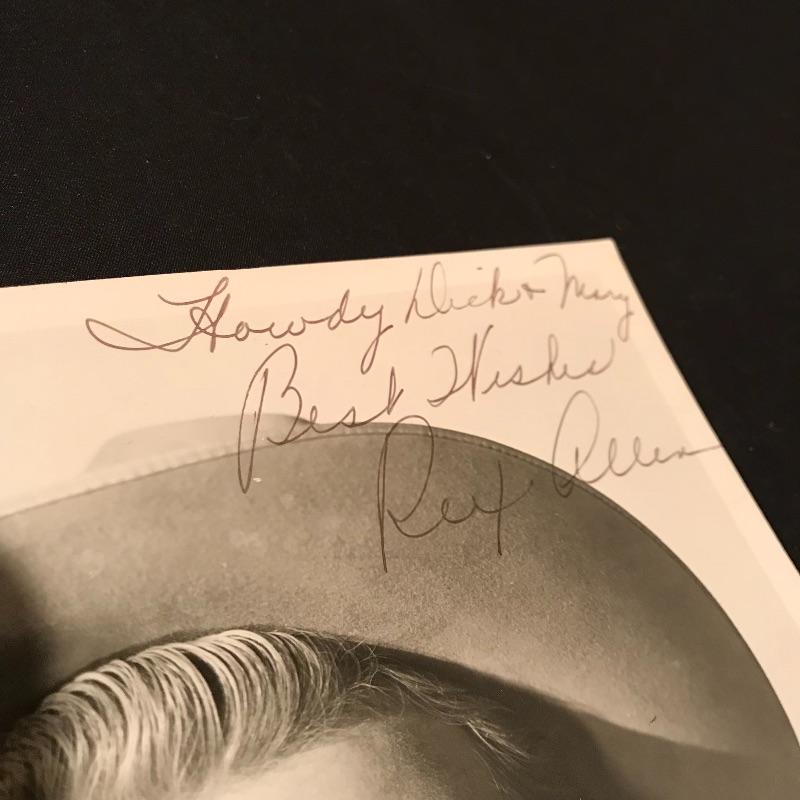 Howdy Dick & Mary
Best Wishes
Rex Allen